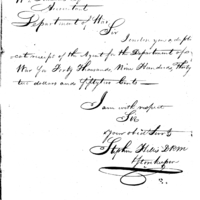 Accountant
Department of War
Sir
I enclose you a dupli
cate receipt of the Agent for the Department of
War for Forty Thousand, Nine Hundred & thirty
two dollars and fifty five Cents —
I am with respect
Sir
your obdt Servt
Stephen Hills
Storekeeper